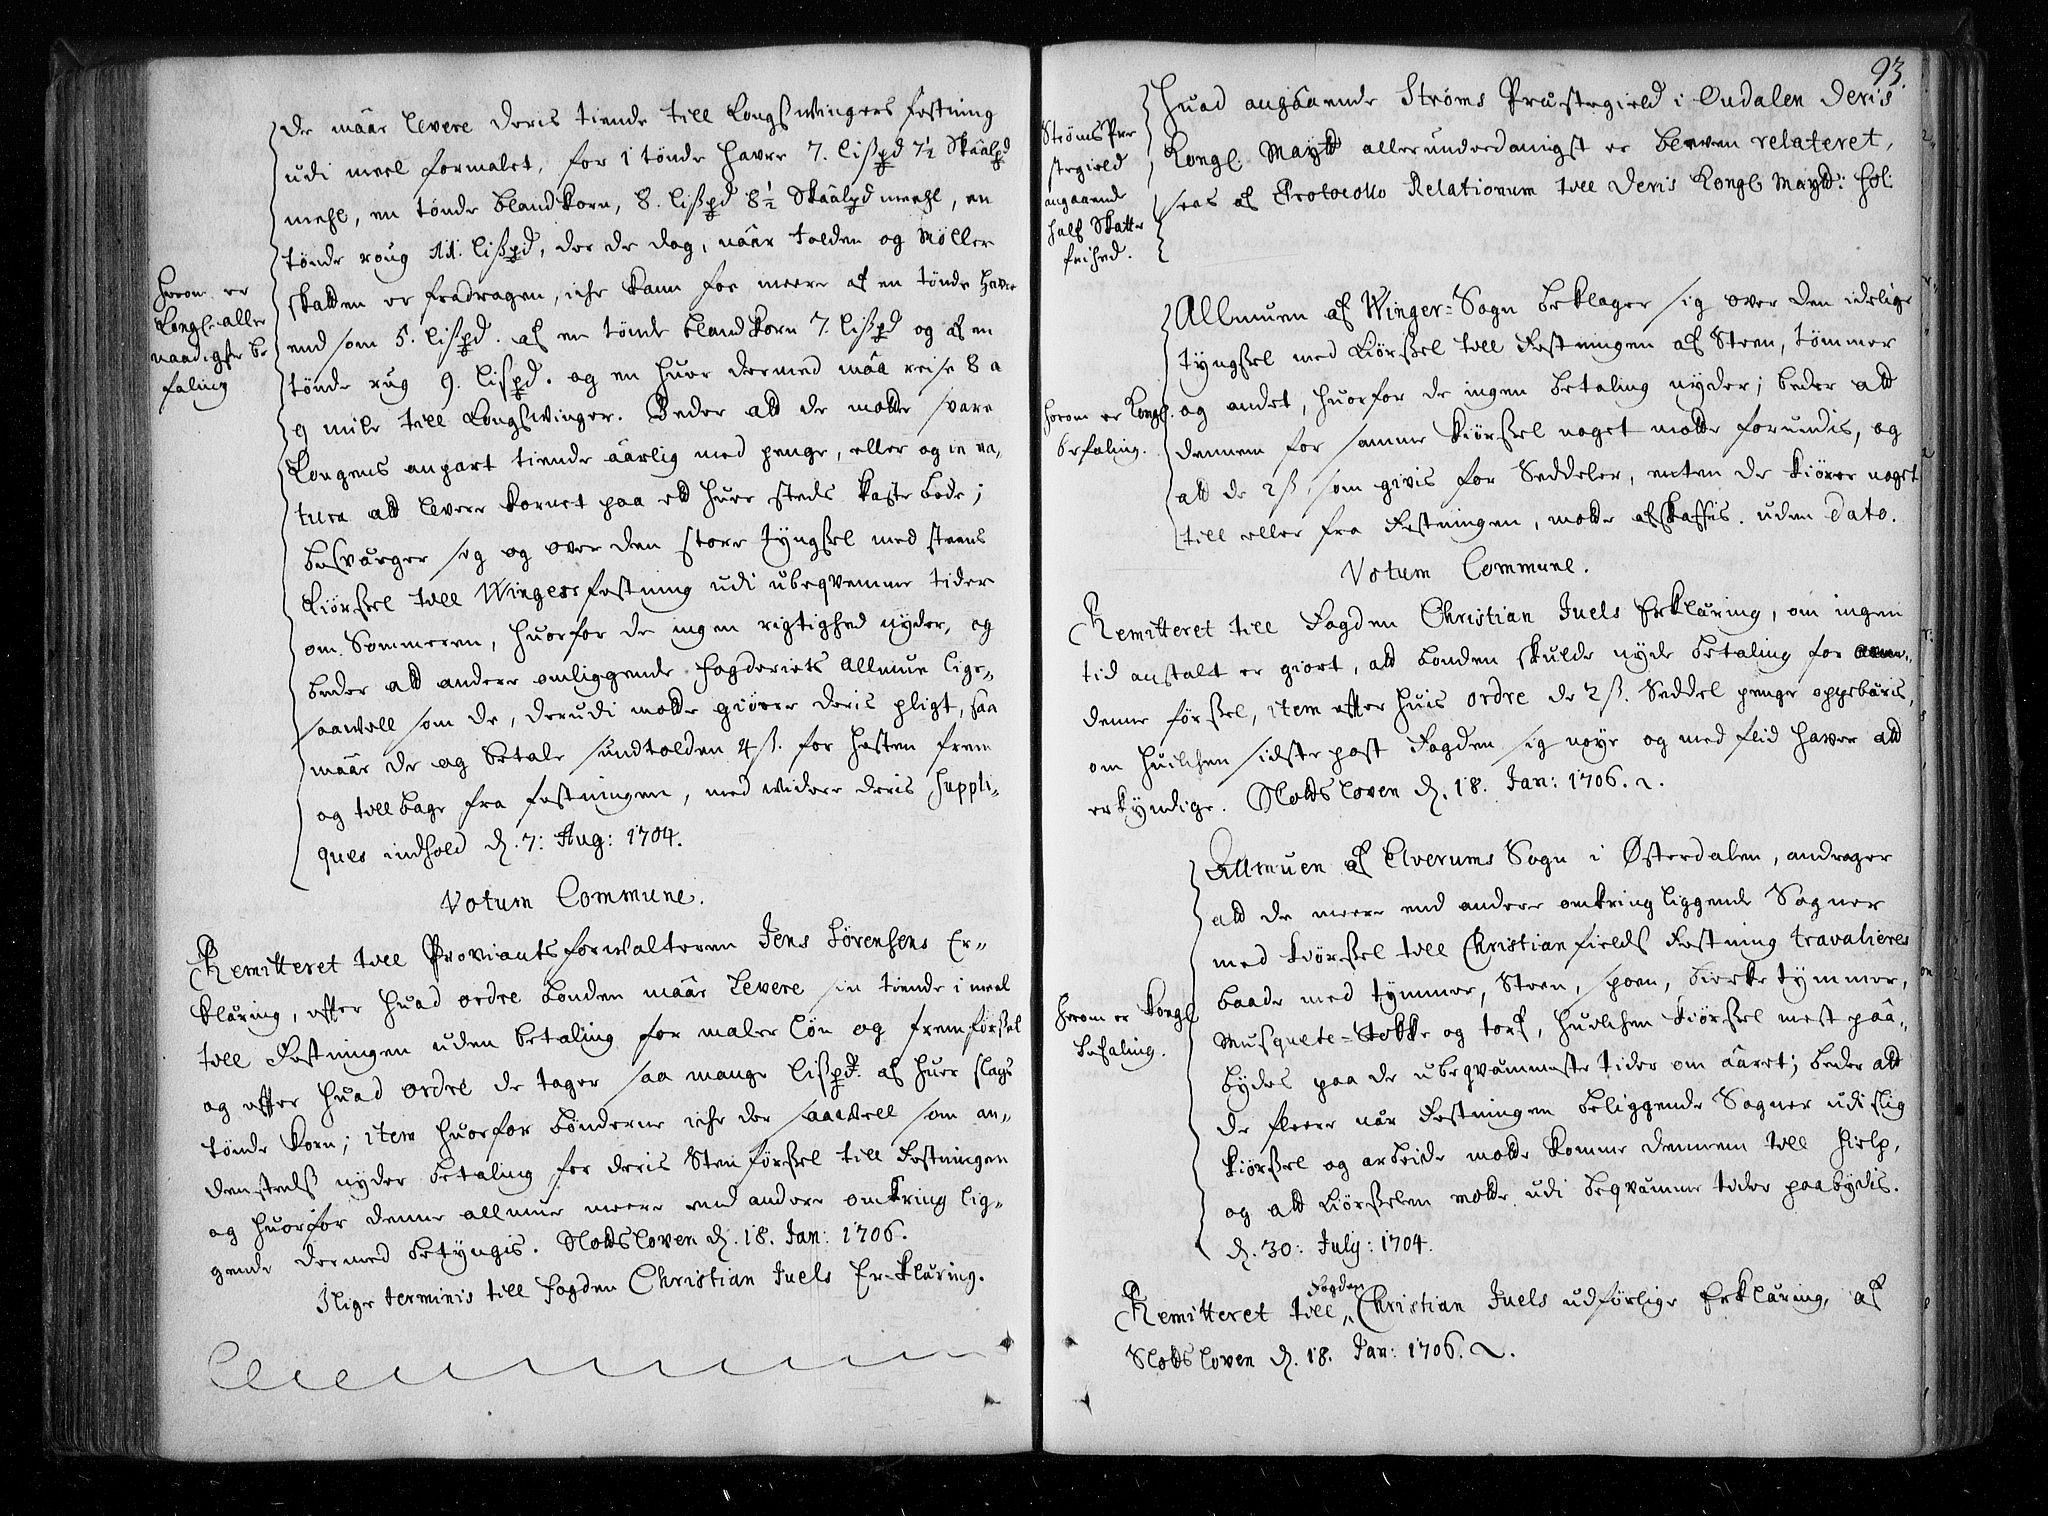 De maar levere deris tiende till Kongßwingers festning
udi meel formalet, for 1 tønde havre 7. lißpd 7½ Skaalpd
meehl, en tønde blandkorn, 8. lißpd 8½ Skaalpd meehl, en
tønde roug 11. lißpd, der de dog, naar tolden og Møller
skatten er fradragen, iche kann faa meere af en tønde havre
end som 5. lißpd. af en tønde blandkorn 7. lißpd og af en
tønde rug 9. lißpd. og en huer dermed maa reise 8 a
9 mile till Kongßwinger. Beder att de motte svare
Kongens anpart tiende aarlig med penge, eller og in na,
tura att levere kornet paa ett huer steds Kaste bode;
besvärger sig og over den store tyngsel med steens
kiørßel till Wingers festning udi ubeqvemme tider
om Sommeren, huorfor de ingen rigtighed nyder, og
beder att andere omliggende fogderiets Allmue lige-
saavell som de, derudi motte giøre deris pligt, saa
maar de og betale sundtolden 4ß. for hesten frem
og tillbage fra festningen, med widere deris suppli-
ques indhold d. 7: Aug: 1704.
Herom er
Kongl: aller
naadigste be
faling
Votum Commune.
Remitteret till Proviantsforwalteren Jens Sørensens Er-
kläring, efter huad ordre bonden maar levere sin tiende i meel
till Festningen uden betaling for maler løn og fremførsel
og efter huad ordre de tager saa mange lißpd. af huer slags
tønde korn; item huorfor bønderne iche der saavell som an-
denstedß nyder betaling for deris Sten førsel till Festningen
og huorfor denne allmue meere end andere omkring lig-
gende dermed betyngis. Slotsloven d. 18. Jan: 1706.
I lige terminis till fogden Christian Juels Er-kläring.
93.
Huad angaaende Strøms Præstegield i Oudalen Deris
Kongl. Maytt allerunderdanigst er bleven relateret,
sees af Protocollo Relationum till Deris Kongl Maytt: fol:
Strøms Præ
stegield
angaaende
half Skatte
frihed.
Allmuen af Winger-Sogn beklager sig over den idelige
tyngsel med kiørßel till Festningen af Steen, tømmer
og andet, huorfor de ingen betaling nyder; beder att
dennem for samme kiørßel noget motte forundis, og
att de 2ß, som givis for Seddeler, enten de kiører noget
till eller fra Festningen, motte afskaffis. uden dato.
Herom er Kongl.
befaling.
Votum Commune.
Remitteret till Fogden Christian Juels Erkläring, om ingen
tid anstalt er giort, att bonden skulde nyde betaling for
denne førsel, item efter huis ordre de 2ß. Seddel penge oppebäris,
om huilchen sidste post Fogden sig nøye og med flid haver att
erkyndige. Slotsloven d. 18. Jan: 1706.
Allmuen af Elverums Sogn i Østerdalen, andrager
att de meere end andere omkring liggende Sogner
med kiørßel till Christianfields Festning travalieres
baade med tymmer, Steen, spoen, birke tymmer,
Musquete-Stokke og torf, huilchen kiørßel mest paa-
bydes paa de ubeqvammeste tider om aaret; beder att
de fleere når Festningen beliggende Sogner udi slig
kiørßel og arbeide motte komme dennem till hielp,
og att kiørßelen motte udi beqvamme tider paabydis.
d. 30: July: 1704.
Herom er Kongl
befaling.
Remitteret till Fogden Christian Juels udførlige Erkläring, af
Slotsloven d. 18. Jan: 1706.